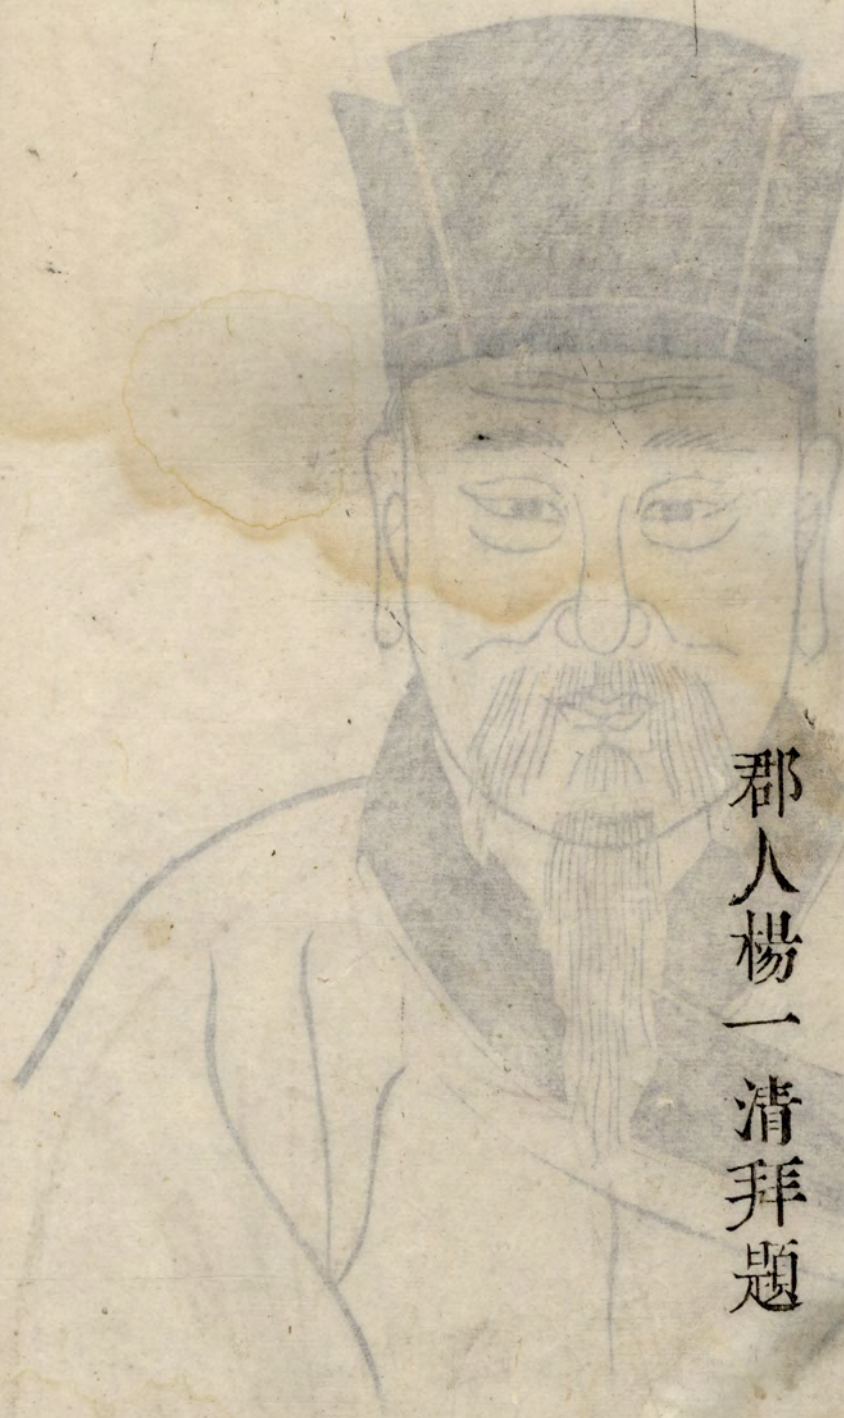 郡人楊一清拜題